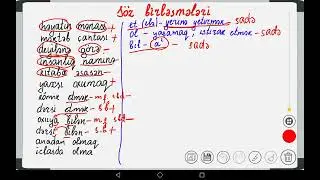 söz birləşmələri
həyatın mənası +
məktəb çantası +
deyilənə görə -
insanlıq naminə -
kitaba əsasən -
yarısı oxumaq +
kömək etmək - m.f. sbd -
dərsi etmək - s.b +
oxuya bilən - m.f. sbd -
dərsi bilən - s.b +
anadan olmaq
iclasda olma
et (elə) - yerinə yetirmək - sadə
ol - yaşamaq, iştirak etmək - sadə
bil - (a) - sadə